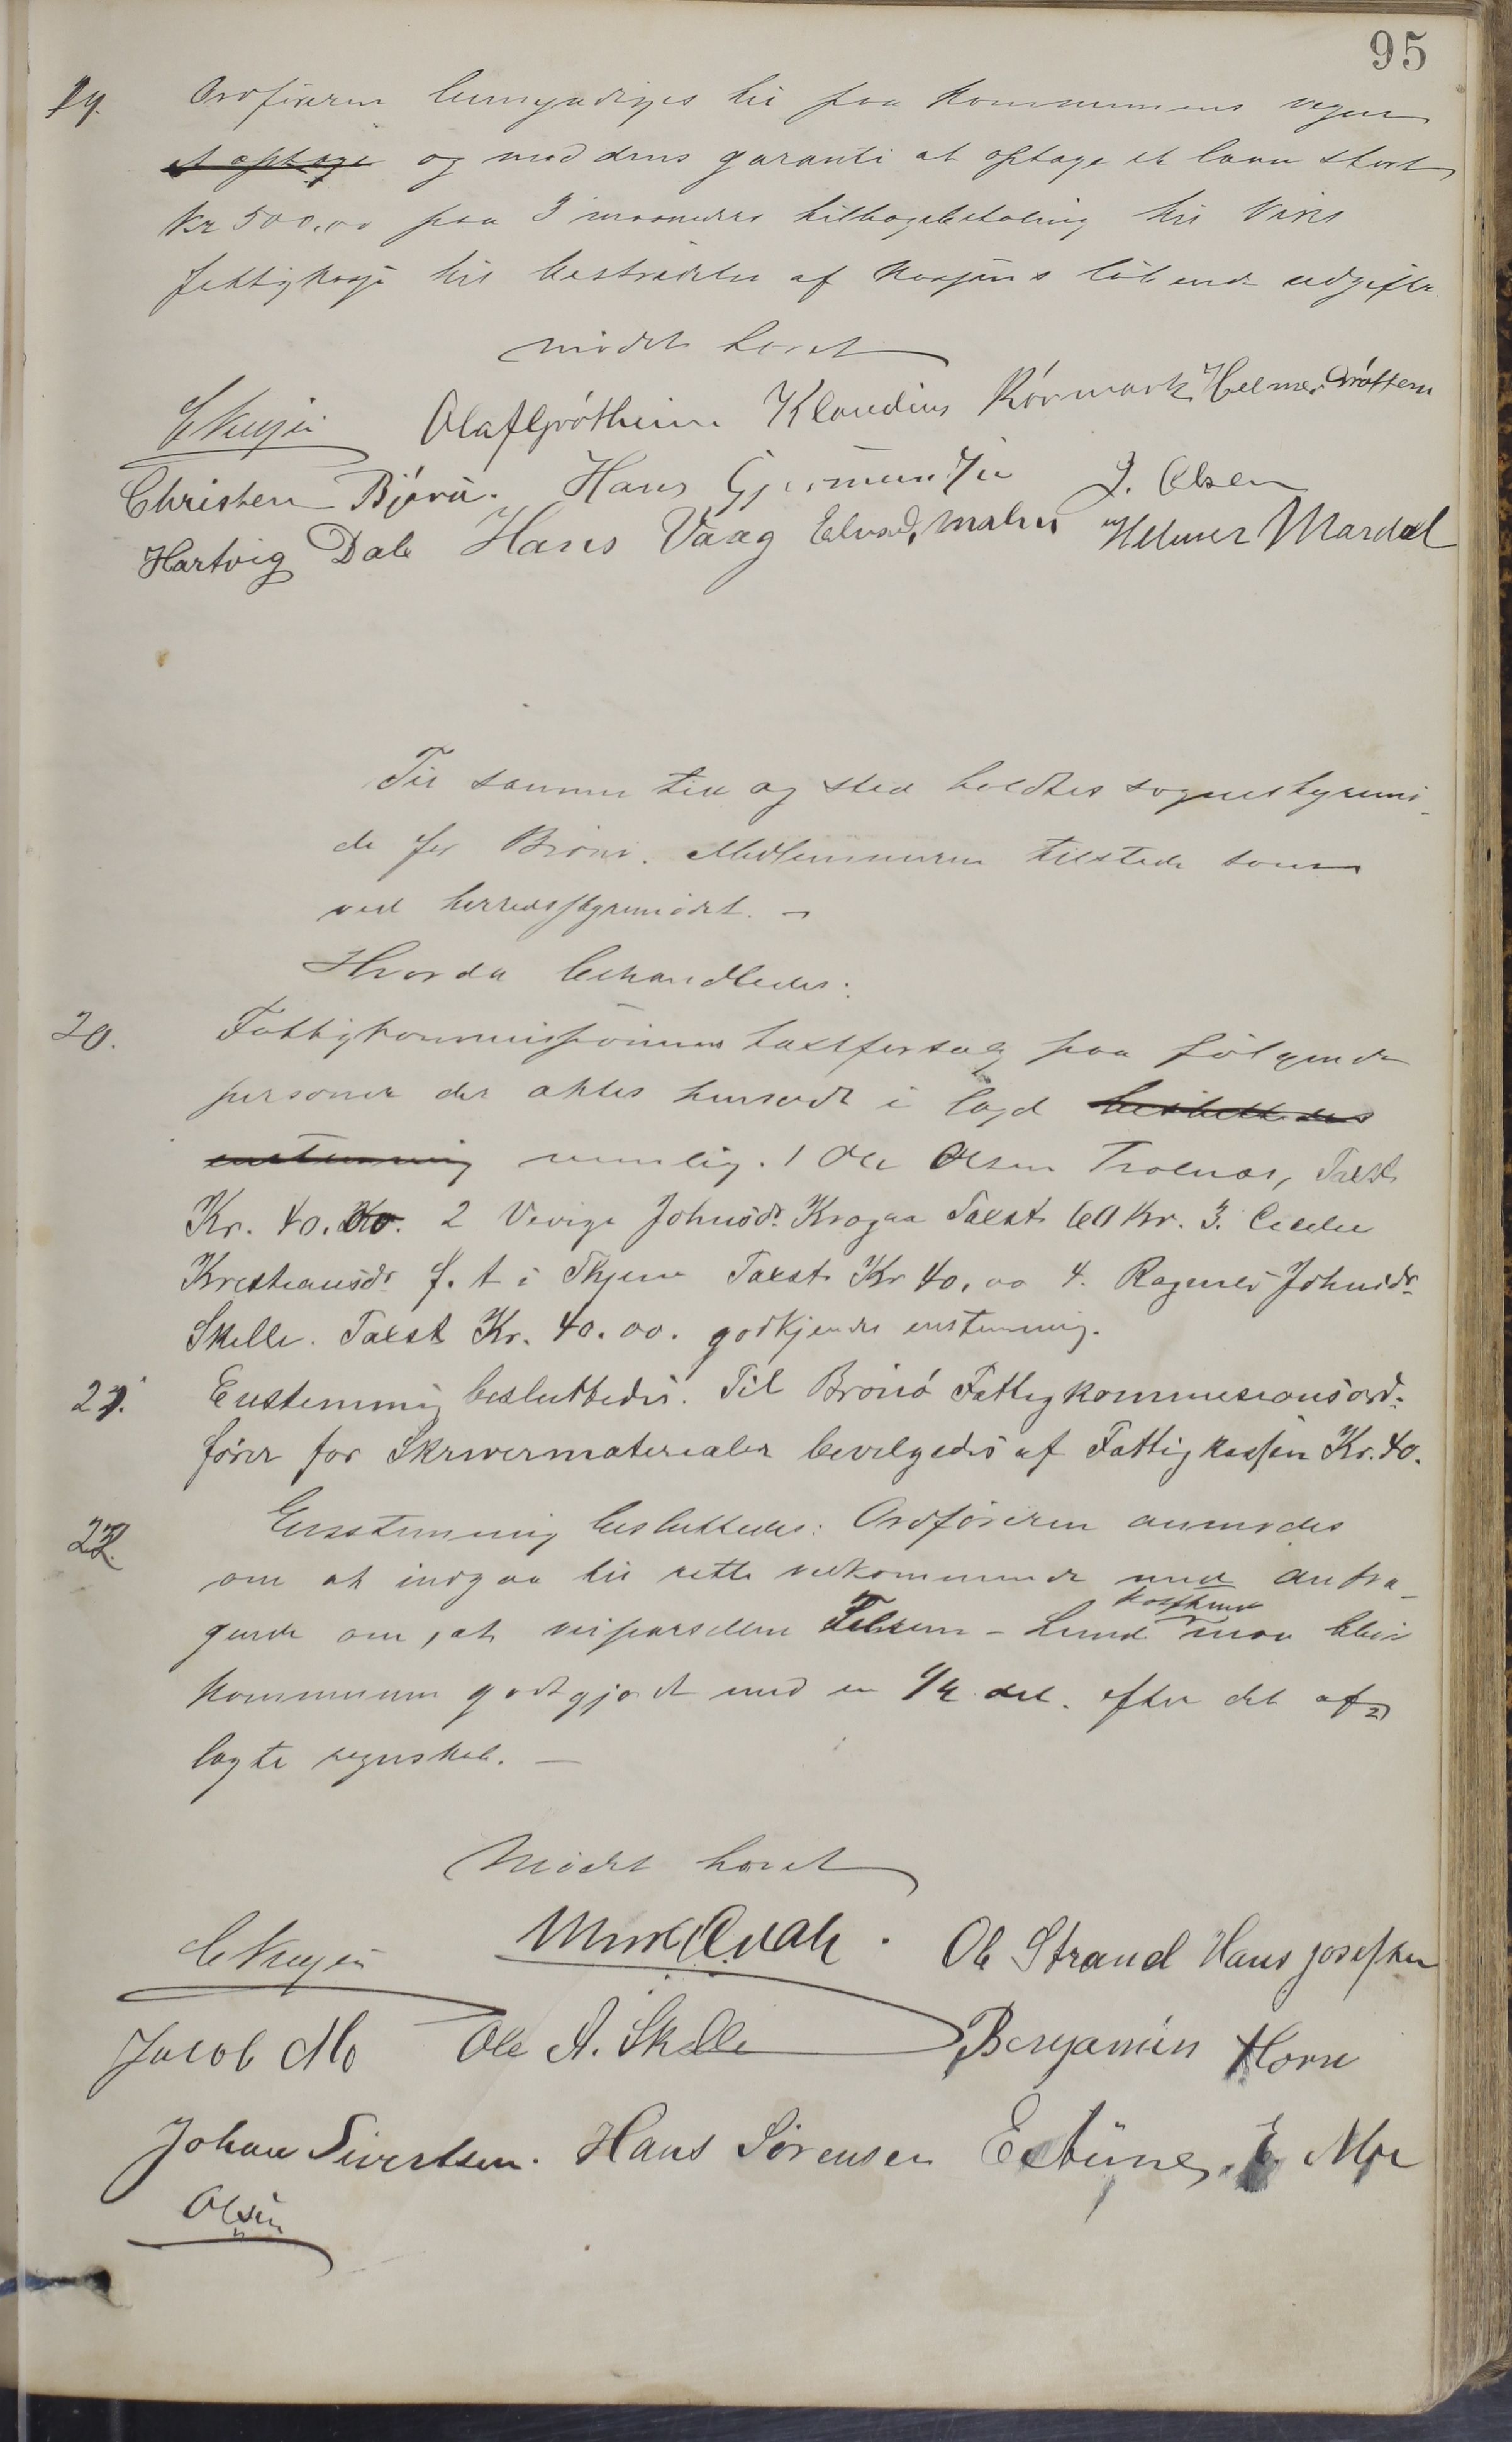 95
19. Ordføreren bemyndiges til paa kommunens vegne
at optage og med dens garanti at optage et laan stort
Kr 500,00 paa 3 maaneders tilbagebetaling til Viks
fattigkasse til bestridelse af kassens løbende udgifter.
mødet hævet
Olaf Grøtheim Klaudius Rørmark Helmer Grøttem
Christen Bjøru. Hans J. Olsen
Hartvig Dale Hans Vaag Helmer Mardal
Til samme tid og sted holdtes sognestyremø-
de for Brønø. Medlemmerne tilstede som
ved herredsstyremødet. -
Hvorda behandledes:
20. Fattigkommissionens taxtforslag paa følgende
personer der agtes hensadt i lægd besluttedes
enstemmig nemlig. 1 Ole Olsen Trælnæs, Taxt
Kr. 40. 2 Johnsdr. Krogaa Taxt 60 Kr. 3.
Kristiansdr. f. t i Skjerve Taxt Kr 40,00 4. Ragnild Johnsdr.
Skille. Taxt Kr. 40.00. godkjendes enstemmig.
21. Enstemmig besluttedes. Til Brønø Fattigkommissionsord-
fører for Skrivermaterialer bevilgedes af Fattigkassen Kr. 40.
22. Enstemmig besluttedes: Ordføreren anmodes
om at indgaa til rette vedkommende med andra-
gende om, at veiparsellen - Lund maa blive
kommunen godtgjort med en 1/4 del. efter det af-
lagte regnskab. -
Mødet hævet
Ole Strand Hans Josefsen
Jacob Mo Ole A. Skille Benjamin Horn
Johan Sivertsen. Hans Sørensen E. Moe
Olsen